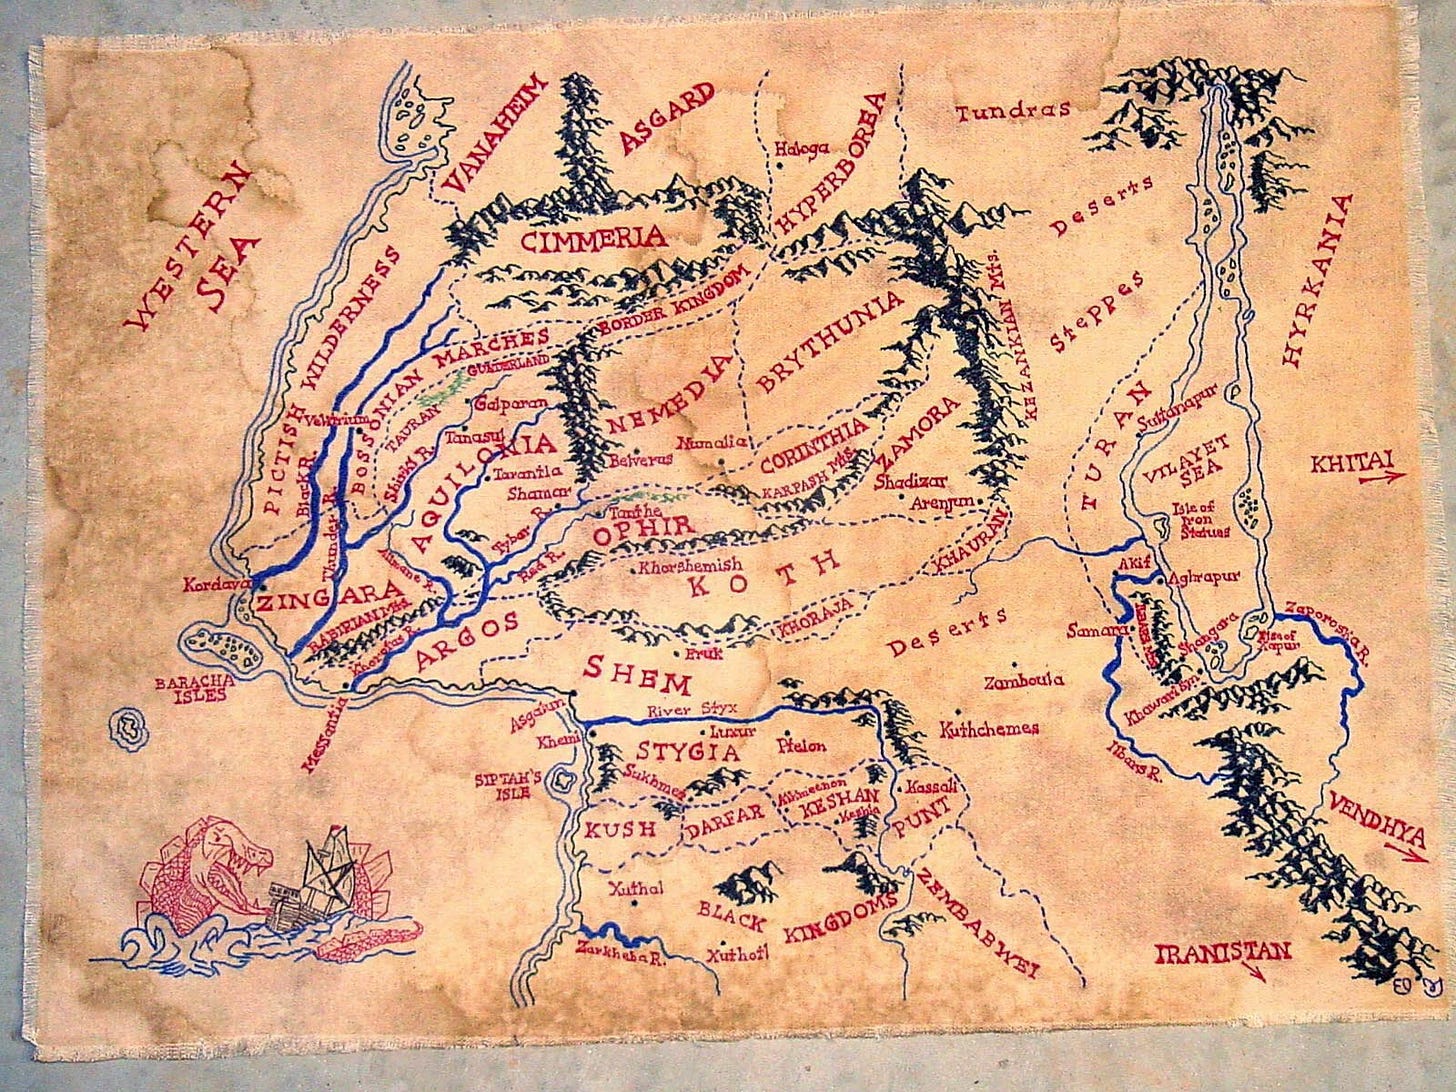 VANAHEIM
ASGARD
HYPERBOREA
Haloga
Tundras
WESTERN
SEA
CIMMERIA
Deserts
HYRKANIA
PICTISH WILDERNESS
BORDER KINGDOM
KEZANKIAN Mts.
Steppes
BOSSONIAN MARCHES
GUNDERLAND
TAURAN
BRYTHUNIA
NEMEDIA
Galparan
Velitrium
Tanasul
AQUILONIA
Numalia
CORINTHIA
ZAMORA
TURAN
Sultanapur
VILAYET
SEA
KHITAI
Black R.
Thunder R.
Shirki R.
Tarantia
Belverus
KARPASH Mts.
Shadizar
Shamar
Arenjun
Tanthe
OPHIR
Isle of
Iron
Statues
Tybor R.
Red R.
Alimane R.
Khorshemish
KOTH
KHAURAN
Akif
Aghrapur
Kordava
ZINGARA
RABIRIAN Mts.
Khorotas R.
ARGOS
KHORAJA
Deserts
Samara
Shangara
Isle of
Xapur
Zaporoska R.
Eruk
SHEM
BARACHA
ISLES
Messantia
Asgalun
River Styx
Zamboula
Khawarism
Khemi
Luxur
STYGIA
Pteion
Kuthchemes
Ilbars R.
SIPTAH'S
ISLE
Sukhmet
KESHAN
Keshia
Kassali
KUSH
DARFAR
PUNT
VENDHYA
Xuthal
BLACK KINGDOMS
ZEMBABWEI
Zarkheba R.
Xuthotl
IRANISTAN